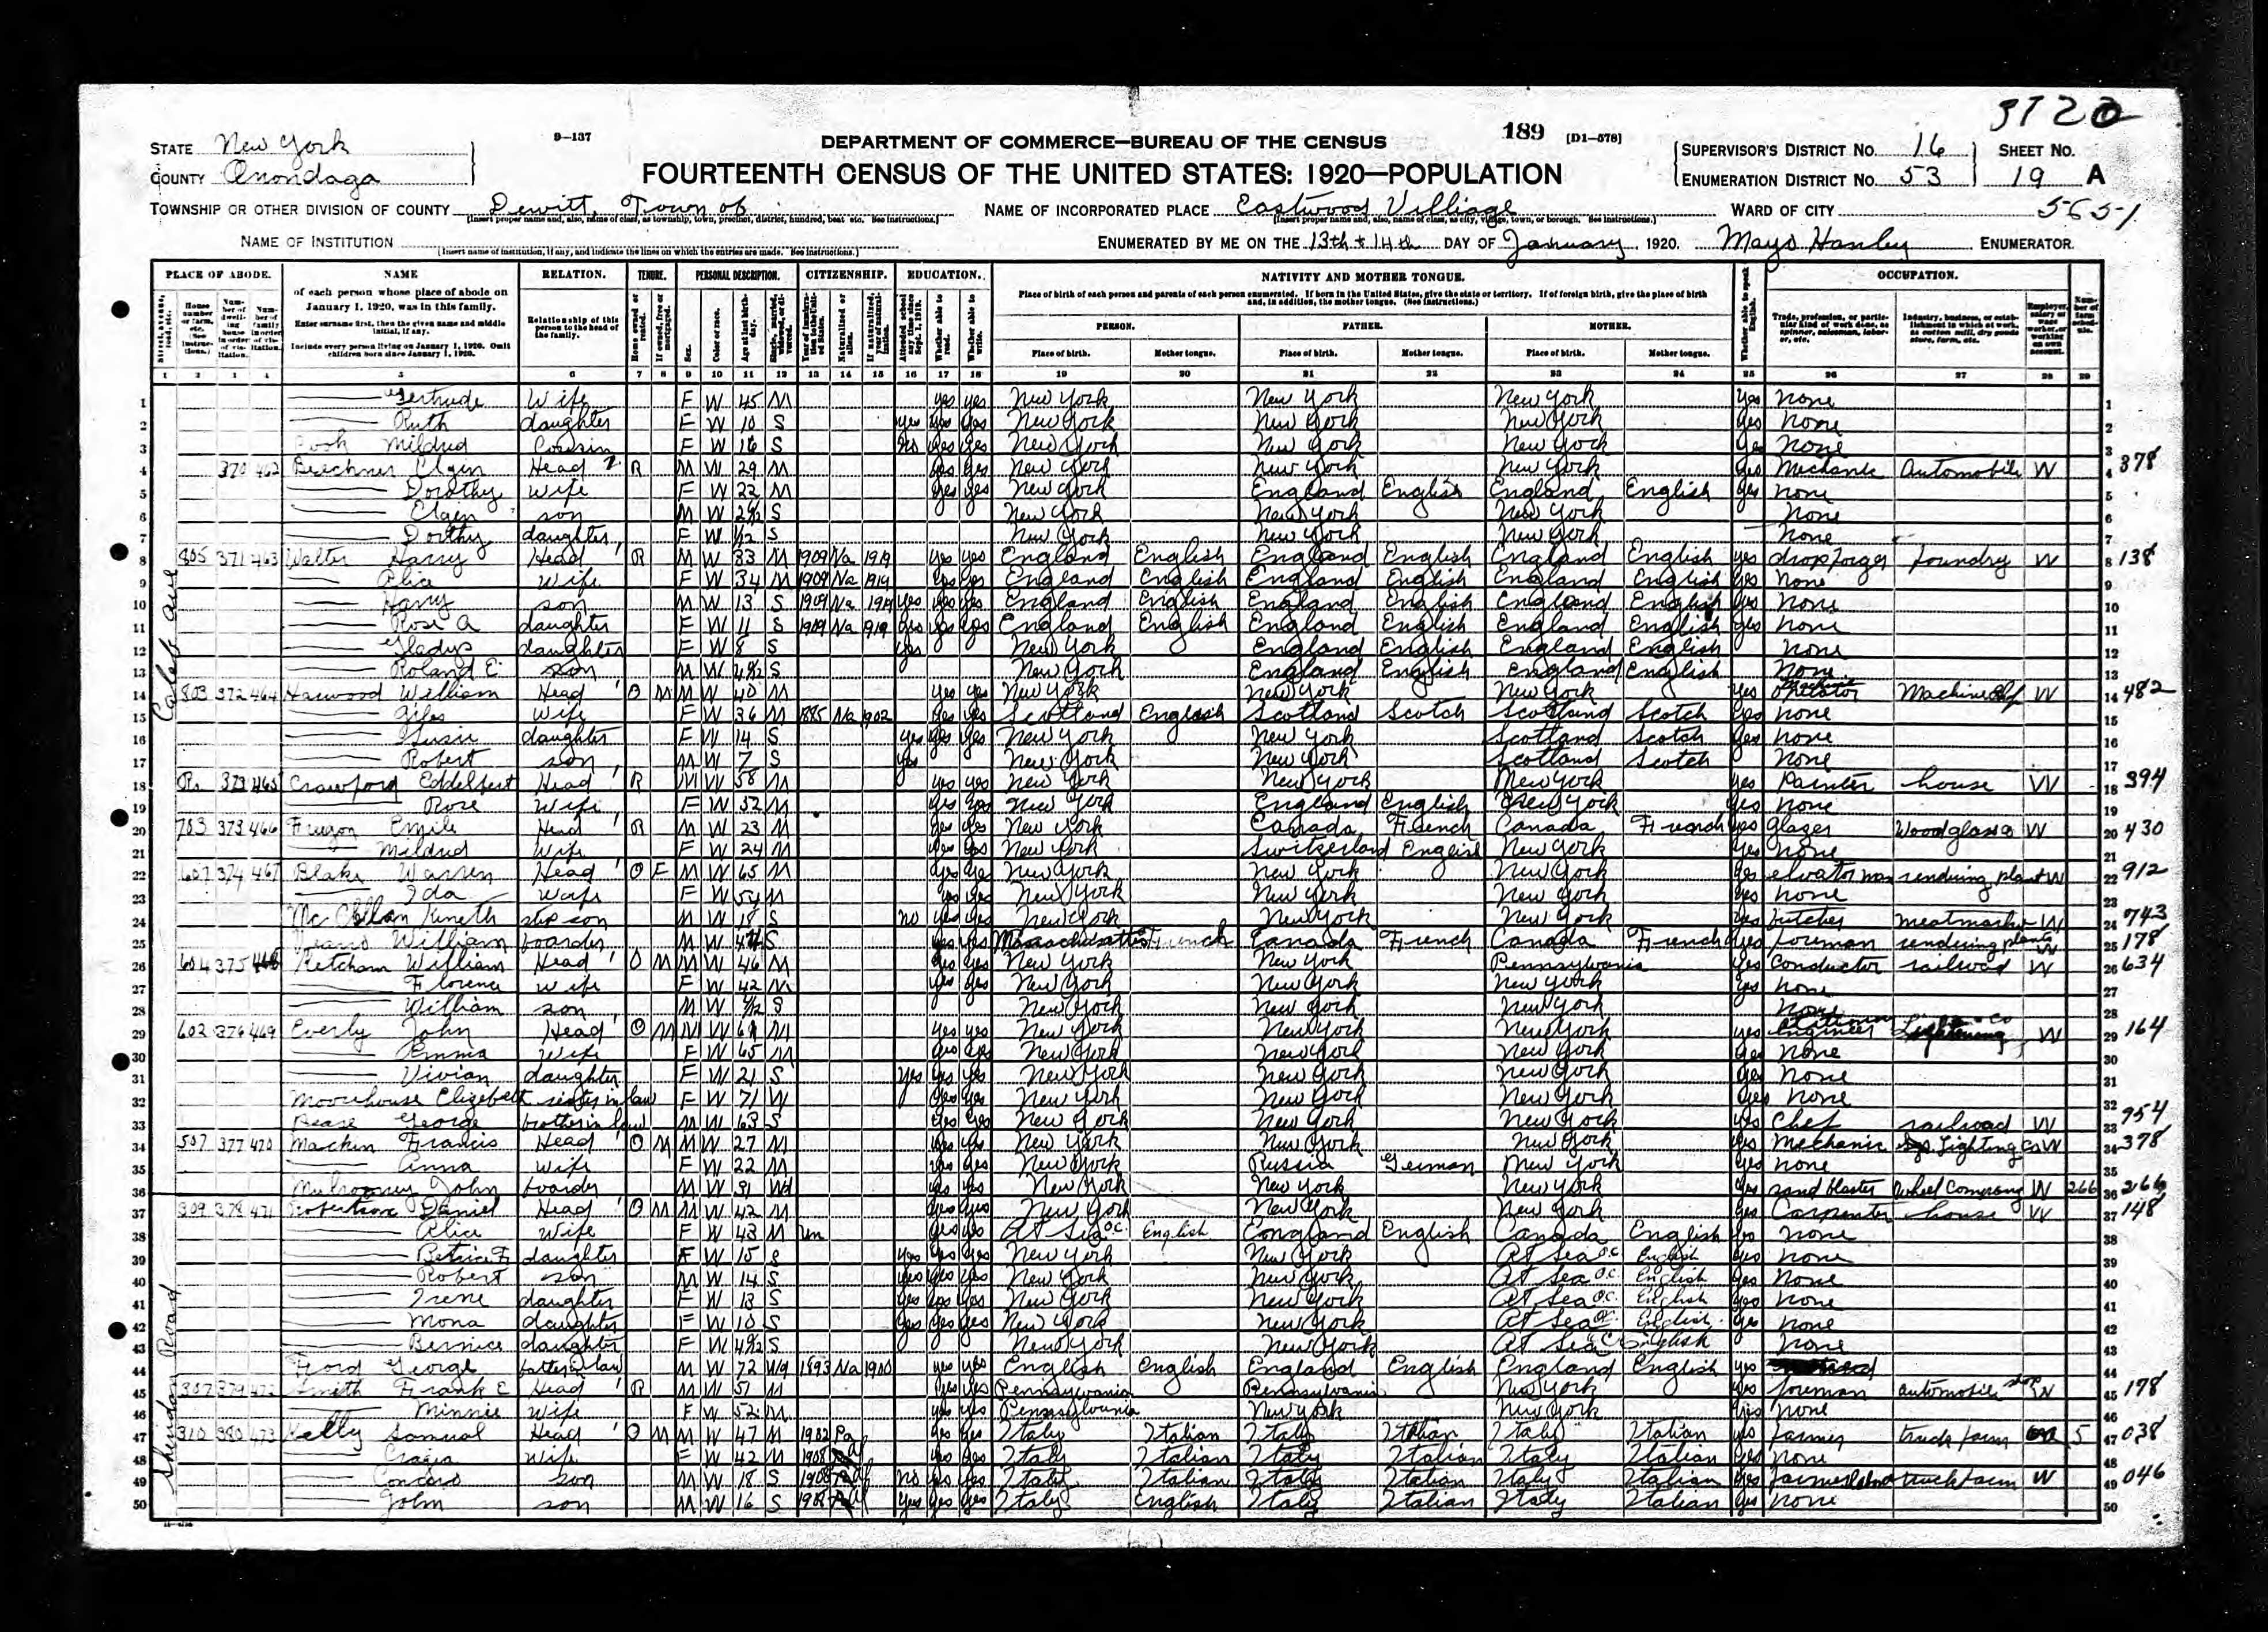 3722
STATE New York
9—137
DEPARTMENT OF COMMERCE—BUREAU OF THE CENSUS
189 [D1—578]
COUNTY Onondaga
FOURTEENTH CENSUS OF THE UNITED STATES: 1920—POPULATION
SUPERVISOR'S DISTRICT No. 16 SHEET No.
ENUMERATION DISTRICT No. 53 19 A
TOWNSHIP OR OTHER DIVISION OF COUNTY Dewitt, Town of
NAME OF INCORPORATED PLACE Eastwood Villiage
WARD OF CITY
5651
[Insert proper name and, also, name of class, as township, town, precinct, district, hundred, beat etc. See instructions.]
[Insert proper name and, also, name of class, as city, village, town, or borough. See instructions.]
NAME OF INSTITUTION
[Insert name of institution, if any, and indicate the lines on which the entries are made. See instructions.]
ENUMERATED BY ME ON THE 13th & 14th DAY OF January, 1920. Mayo Hanley ENUMERATOR.
PLACE OF ABODE. NAME RELATION. TENURE. PERSONAL DESCRIPTION. CITIZENSHIP. EDUCATION. NATIVITY AND MOTHER TONGUE. OCCUPATION.
of each person whose place of abode on January 1, 1920, was in this family.
Enter surname first, then the given name and middle initial, if any.
Include every person living on January 1, 1920. Omit children born since January 1, 1920.
Relationship of this person to the head of the family.
Place of birth of each person and parents of each person enumerated. If born in the United States, give the state or territory. If of foreign birth, give the place of birth and, in addition, the mother tongue. (See instructions.)
PERSON. FATHER. MOTHER.
Place of birth. Mother tongue. Place of birth. Mother tongue. Place of birth. Mother tongue.
Caleb ave
1 Gertrude Wife F W 45 M yes yes New York New York New York yes none
2 Ruth daughter F W 10 S yes yes yes New York New York New York yes none
3 Cook Mildred Cousin F W 16 S no yes yes New York New York New York yes none
4 370 462 Beechner Elgin Head R M W 29 M yes yes New York New York New York yes Mechanic Automobile W 378
5 Dorothy Wife F W 22 M yes yes New York England English England English yes none
6 Elgin son M W S New York New York New York none
7 Dorthy daughter F W S New York New York New York none
8 805 371 463 Walter Harry Head R M W 33 M 1909 Na 1919 yes yes England English England English England English yes drop forger foundry W 138
9 Alice Wife F W 34 M 1909 Na 1919 yes yes England English England English England English yes none
10 Harry son M W 13 S 1909 Na 1919 yes yes yes England English England English England English yes none
11 Rose A daughter F W 11 S 1909 Na 1919 yes yes yes England English England English England English yes none
12 Gladys daughter F W 8 S yes New York England English England English none
13 Roland E son M W S New York England English England English none
14 803 372 464 Harwood William Head O M M W 40 M yes yes New York New York New York yes Machine operator Machine W 482
15 Wife F W 36 M 1885 Na 1902 yes yes Scotland English Scotland Scotch Scotland Scotch yes none
16 Susie daughter F W 14 S yes yes yes New York New York Scotland Scotch yes none
17 Robert son M W 7 S yes New York New York Scotland Scotch none
18 R. 373 465 Crawford Eddelbert Head R M W 58 M yes yes New York New York New York yes Painter house W 394
19 Rose Wife F W 52 M yes yes New York England English New York yes none
20 783 373 466 Emile Head R M W 23 M yes yes New York Canada French Canada French yes glazer Wood glass W 430
21 Mildred Wife F W 24 M yes yes New York Switzerland English New York yes none
22 607 374 467 Blake Warren Head O F M W 65 M yes yes New York New York New York yes elvator man rendering plant W 912
23 Ida Wife F W 54 M yes yes New York New York New York yes none
24 Mc Clellan Kineth step son M W 18 S no yes yes New York New York New York yes butcher meat market W 743
25 William boarder M W S yes yes Massachusettes French Canada French Canada French yes foreman rendering plant W 178
26 604 375 468 Ketcham William Head O M M W 46 M yes yes New York New York Pennsylvania yes Conductor railroad W 634
27 Florence wife F W 42 M yes yes New York New York New York yes none
28 William son M W S New York New York New York none
29 602 376 469 Everly John Head O M M W M yes yes New York New York New York yes stationary engineer W 164
30 Emma Wife F W 65 M yes yes New York New York New York yes none
31 Vivian daughter F W 21 S yes yes yes New York New York New York yes none
32 Moorehouse Elizebeth sister in law F W 71 W yes yes New York New York New York yes none
33 Pease George brother in law M W 63 S yes yes New York New York New York yes Chef railroad W 954
34 507 377 470 Mackin Francis Head O M M W 27 M yes yes New York New York New York yes Mechanic Syr. Lighting Co W 378
35 Anna wife F W 22 M yes yes New York Russia German New York yes none
36 Mulrooney John boarder M W 31 Wd yes yes New York New York New York yes sand blaster wheel Company W 266 266
Sheridan Road
37 309 378 471 Robertson Daniel Head O M M W 42 M yes yes New York New York New York yes Carpenter house W 148
38 Alice Wife F W 43 M Un yes yes At Sea O.C. English England English Canada English yes none
39 Betrice F daughter F W 15 S yes yes yes New York New York At Sea O.C. English yes none
40 Robert son M W 14 S yes yes yes New York New York At Sea O.C. English yes none
41 Irene daughter F W 13 S yes yes yes New York New York At Sea O.C. English yes none
42 Mona daughter F W 10 S yes yes yes New York New York At Sea O.C. English yes none
43 Bernice daughter F W S New York New York At Sea O.C. English none
44 Ford George father in law M W 72 Wd 1893 Na 1900 yes yes English English England English England English yes
45 307 379 472 Smith Frank E Head R M W 51 M yes yes Pennsylvania Pennsylvania New York yes foreman automobile shop W 178
46 Minnie wife F W 52 M yes yes Pennsylvania New York New York yes none
47 310 380 473 Kelly Samual Head O M M W 47 M 1902 Pa yes yes Italy Italian Italy Italian Italy Italian yes farmer truck farm 5 038
48 wife F W 42 M 1908 yes yes Italy Italian Italy Italian Italy Italian yes none
49 son M W 18 S 1908 no yes yes Italy Italian Italy Italian Italy Italian yes farm laborer truck farm W 046
50 John son M W 16 S 1908 yes yes yes Italy English Italy Italian Italy Italian yes none